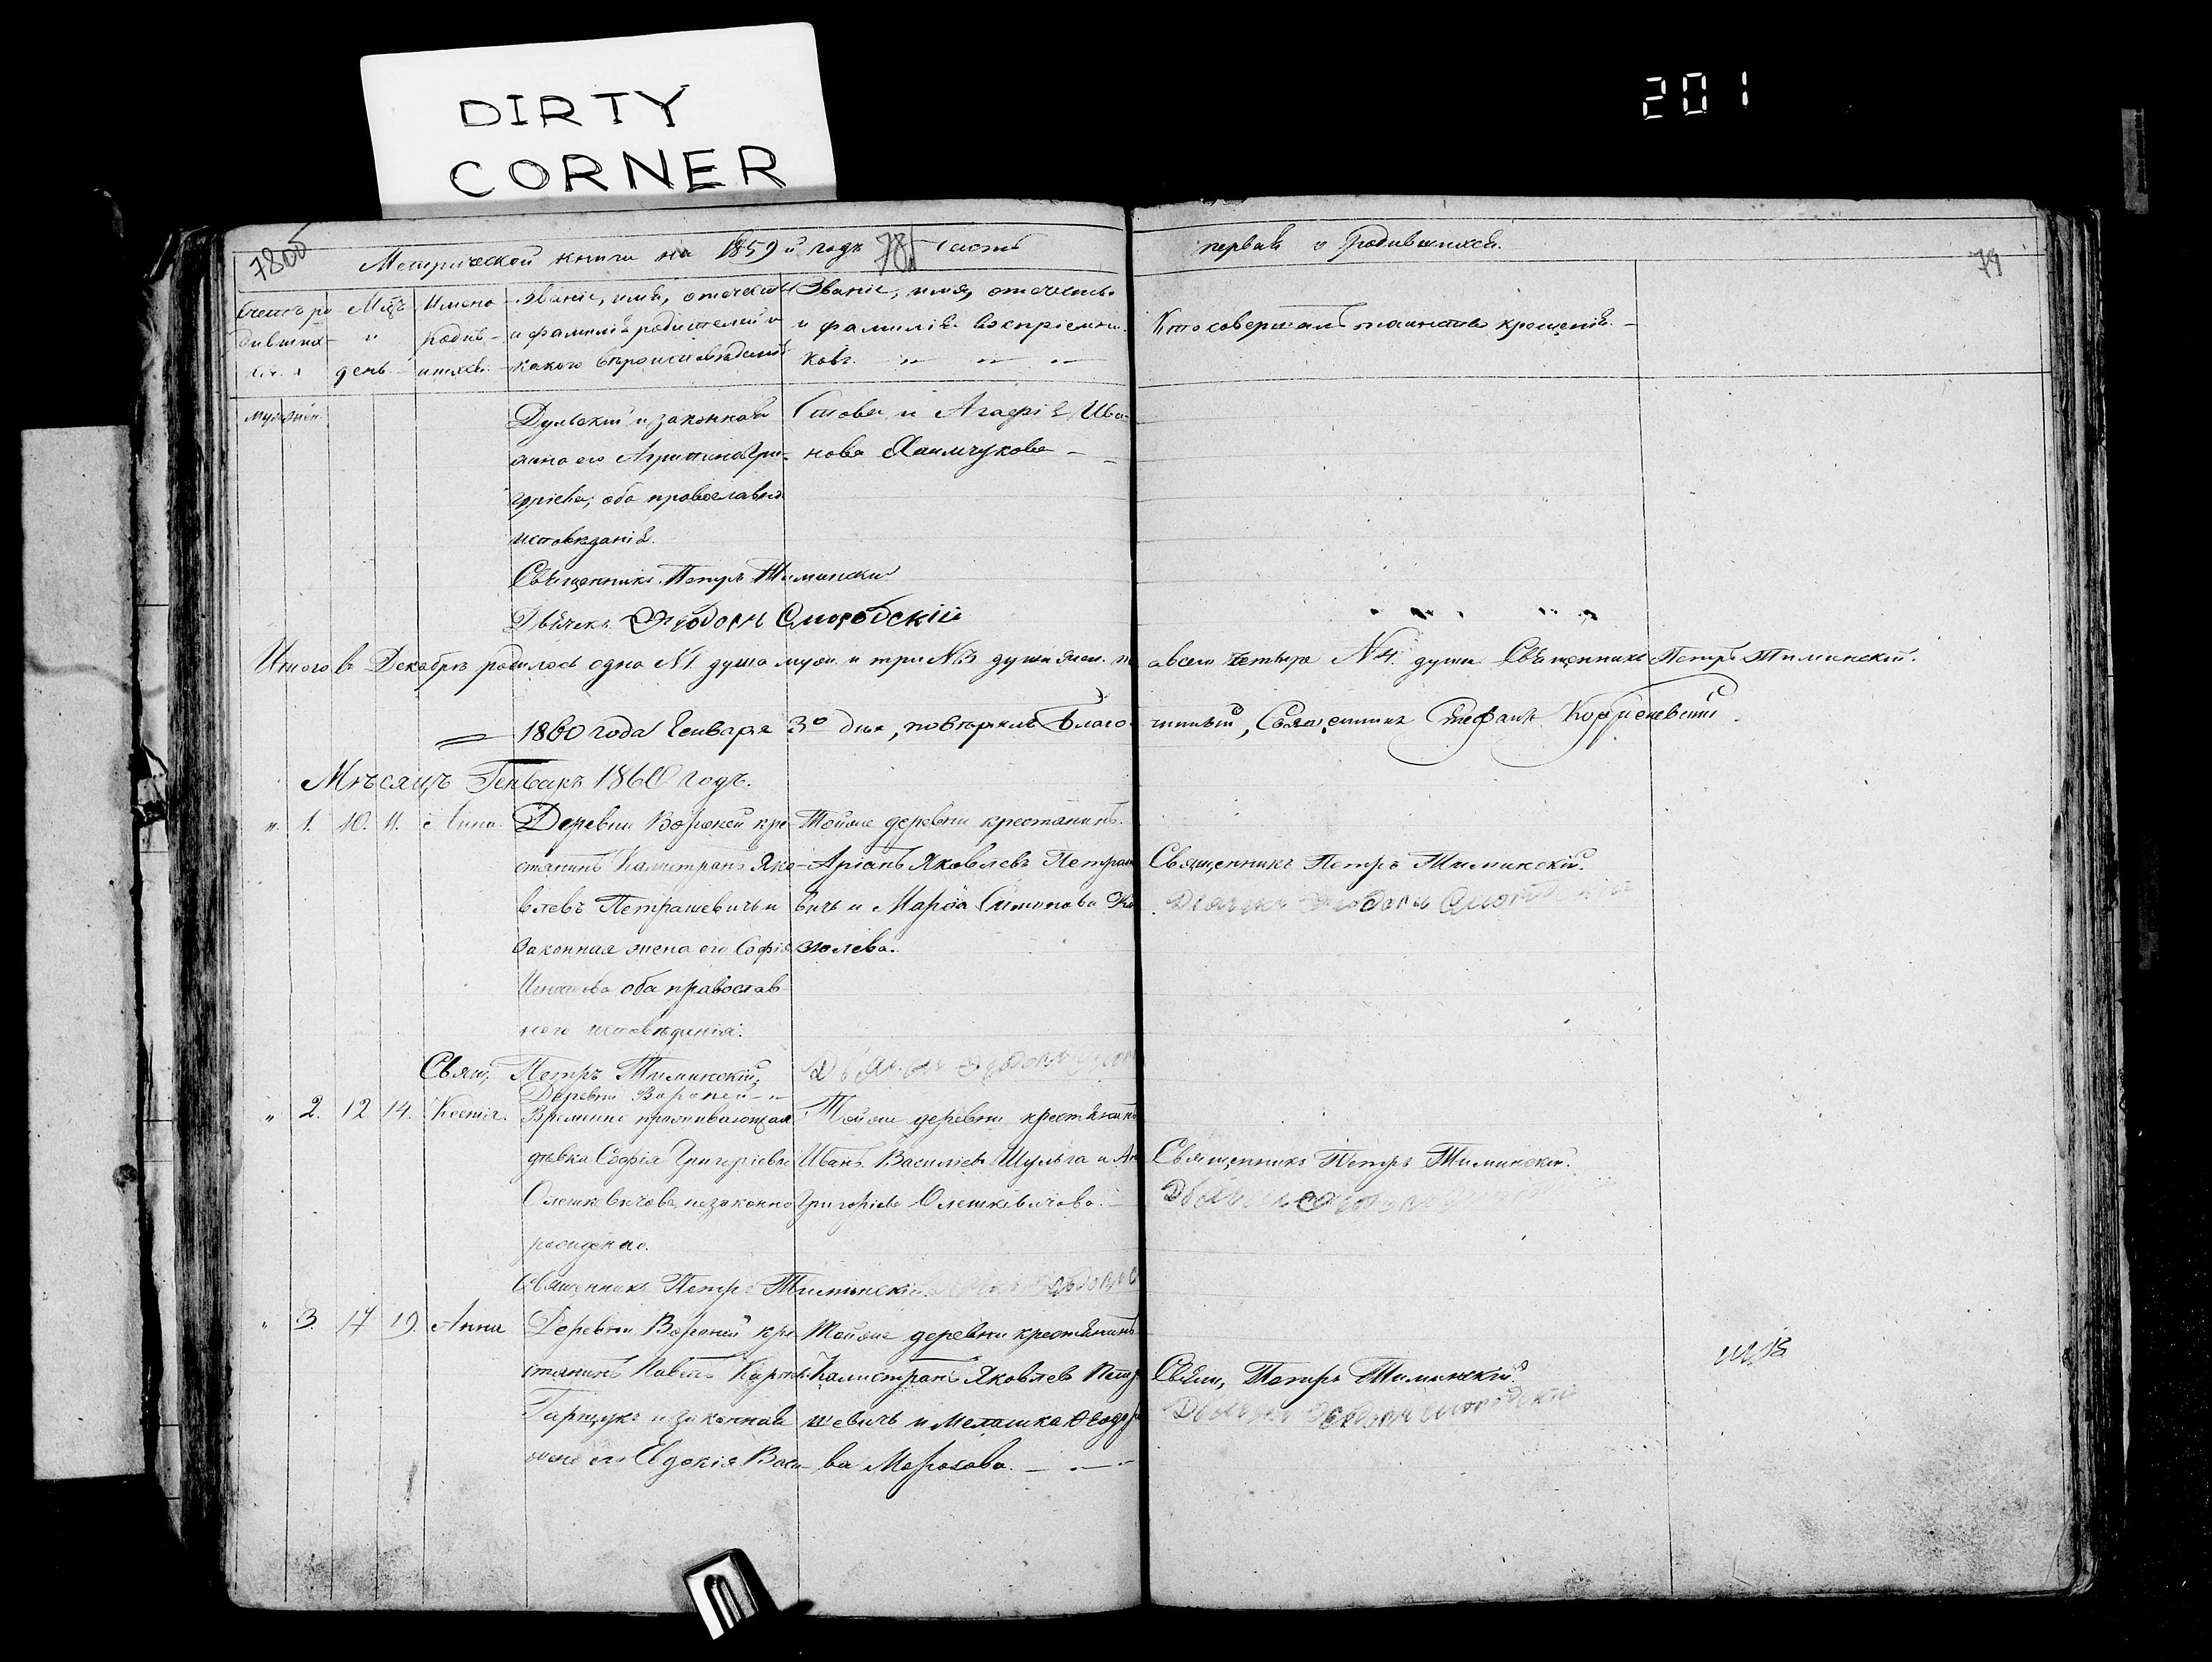 DIRTY
CORNER
201
78об
Метрической книги на 1859й годъ 78 Часть
первая о Родившихся.
79
Счетъ ро Мцъ Имена Званіе, имя, отечество Званіе, имя, отечество
дивших- и Родив- и фамилія родителей и и фамилія воспріемни-
день шихся какого вѣроисповѣданія ковъ.
Кто совершалъ таинство крещенія.
муж жен
Дульскій и законная
жена его Агрипина Гри-
горіева, оба православна
исповѣданія.
Священникъ Петръ Тиминскій
Дьячекъ Ѳеодоръ Смородскій
стова и Агафія Ива-
нова
Итого в Декабрѣ родилось одна №1 душа муж. и три №3 души жен. а всего четыре №4. души Священникъ Петръ Тиминскій.
1860 года Генваря 3о дня, повѣрялъ Благочинный, Священникъ Стефанъ
Мѣсяцъ Генварь 1860 годъ.
" 1. 10. 11. Анна
Деревни Вороней кре-
стянинъ Калистратъ Яко-
влевъ Петрашевичъ и
Законная жена его Софія
оба православ-
ного исповѣданія.
Тойже деревни крестянинъ
Яковлевъ Петраш
вичъ и Марѳа Симонова Ко
золева.
Священникъ Петръ Тиминскій.
Дьячекъ Ѳеодоръ Смородскій
Свящ. Петръ Тиминскій,
Дьячекъ Ѳеодоръ Смор
" 2. 12 14. Ксенія.
Деревни Вороней
Временно проживающая
дѣвка Софія Григоріева
Олешкевичова, незаконно
рожденно.
Тойже деревни крестянинъ
Иванъ Василіевъ Шульга и Ан
Григоріева Олешкевичова.
Священникъ Петръ Тиминскій.
Дьячекъ Ѳеодоръ
Священникъ Петръ Тиминскій. Дьячекъ Ѳеодоръ С
" 3. 17 19. Анна
Деревни Вороней кре
стянинъ Павелъ Карповъ
Гарщукъ и законная
жена его Евдокія Васи-
Тойже деревни крестянинъ
Калистратъ Яковлевъ Петра
шевичъ и Мелашка Ѳеодоро
ва Морозова.
Свящ, Петръ Тиминскій.
Дьячекъ Ѳеодоръ Смородскій